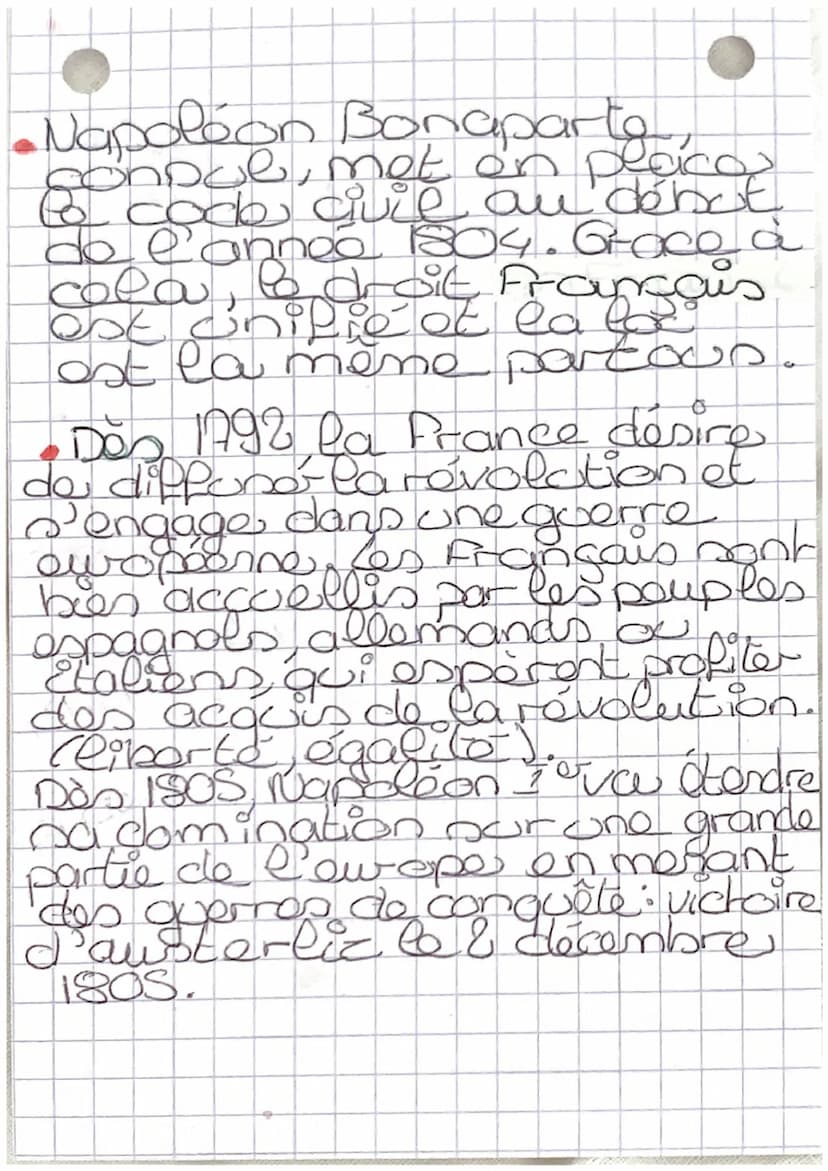 • Napoléon Bonaparte,
consul, met en place
le code civil au début
de l'année 1804. Grace à
cela, le droit Français
est unifié et la loi
est la même partous.
• Dès 1792 la France désire
de diffusé la révolction et
s'engage dans une guerre
européenne. Les Français sont
bien accuellis par les peuples
espagnols, allemands ou
italiens, qui espèrent profiter
des acquis de la révolution.
(liberté, égalité).
Dès 1805, Napoléon 1er va étendre
sa domination sur une grande
partie de l'europe en menant
des guerres de conquête : victoire
d'austerliz le 2 décembre
1805.